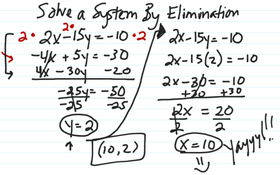 Solve a System By Elimination
2·
2· 2x-15y=-10 ·2
-4x+5y=-30
4x-30y -20
-25y=-50
-25 -25
y=2
(10,2)
2x-15y=-10
2x-15(2)=-10
2x-30=-10
+30 +30
2x=20
2 2
x=10
yayyy!!